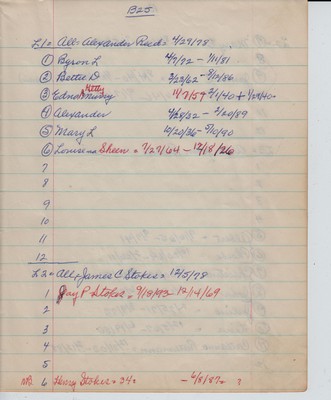 B25
L1 = All = Alexander Reed = 4/29/78
① Byron L 4/9/72 - 1/11/81
② Bettie D 2/22/62 - 9/12/86
Kitty
③ Edna Murray 11/7/59
④ Alexander 4/28/52 - 2/20/89
⑤ Mary L 10/20/36 - 5/10/90
⑥ Louise Sheen = 7/27/64 - 12/18/26
7
8
9
10
11
12
L2 = All = James C Stokes = 12/5/78
1 Jay P Stokes = 9/18/93 12/14/69
2
3
4
5
6 Henry Stokes = 34 = - 6/8/87 = ?